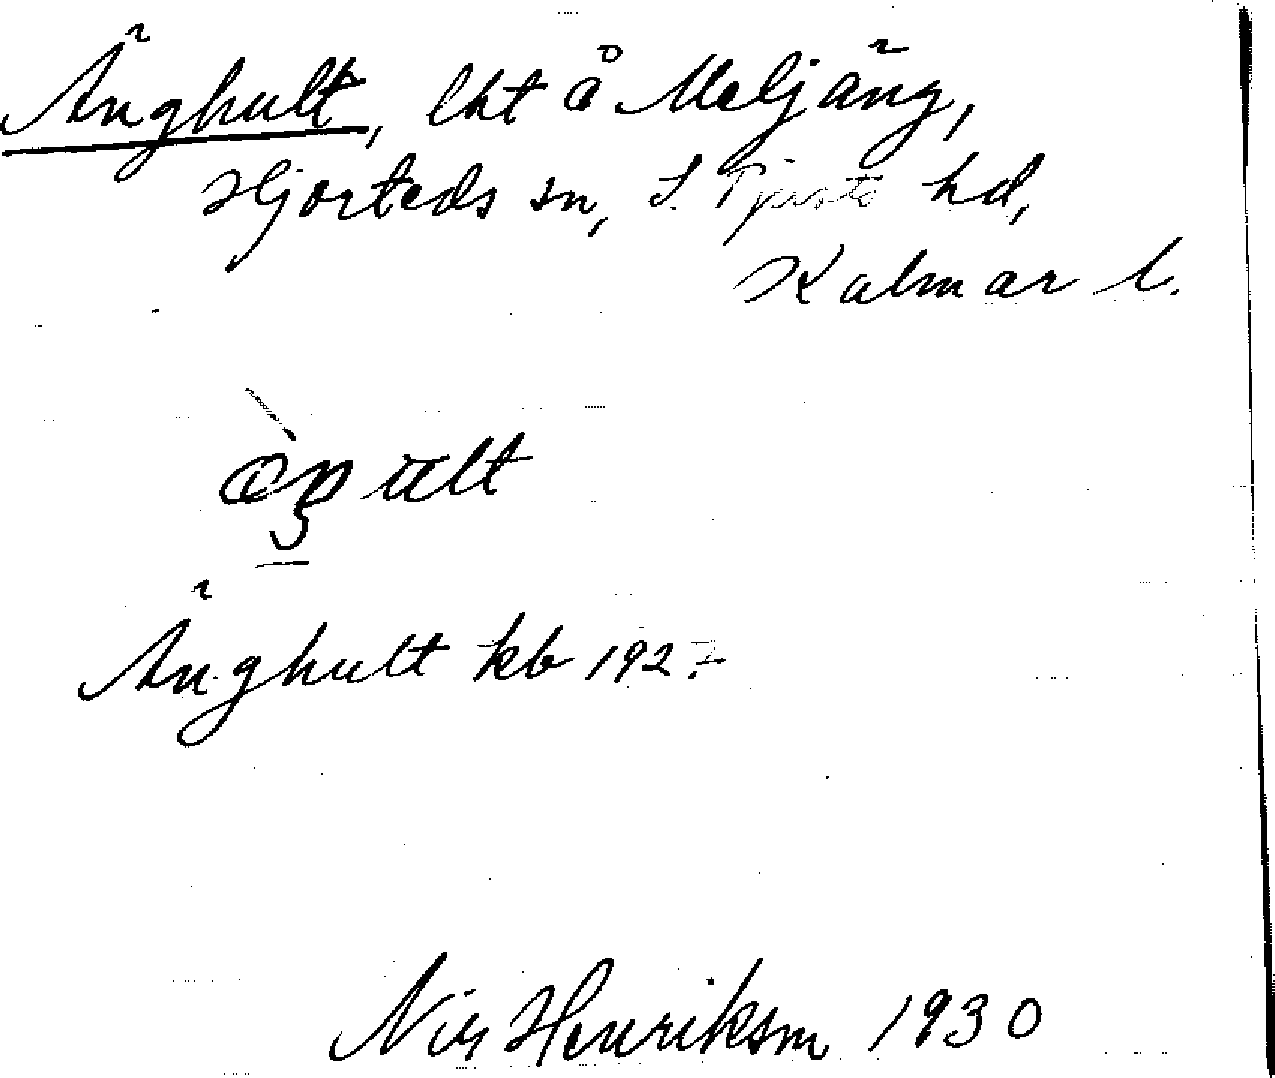 Änghult, lht å Meljäng,
Hjorteds sn, S. Tjusts hd,
Kalmar l.
Änghult kb 192
Nils Henriksson 1930